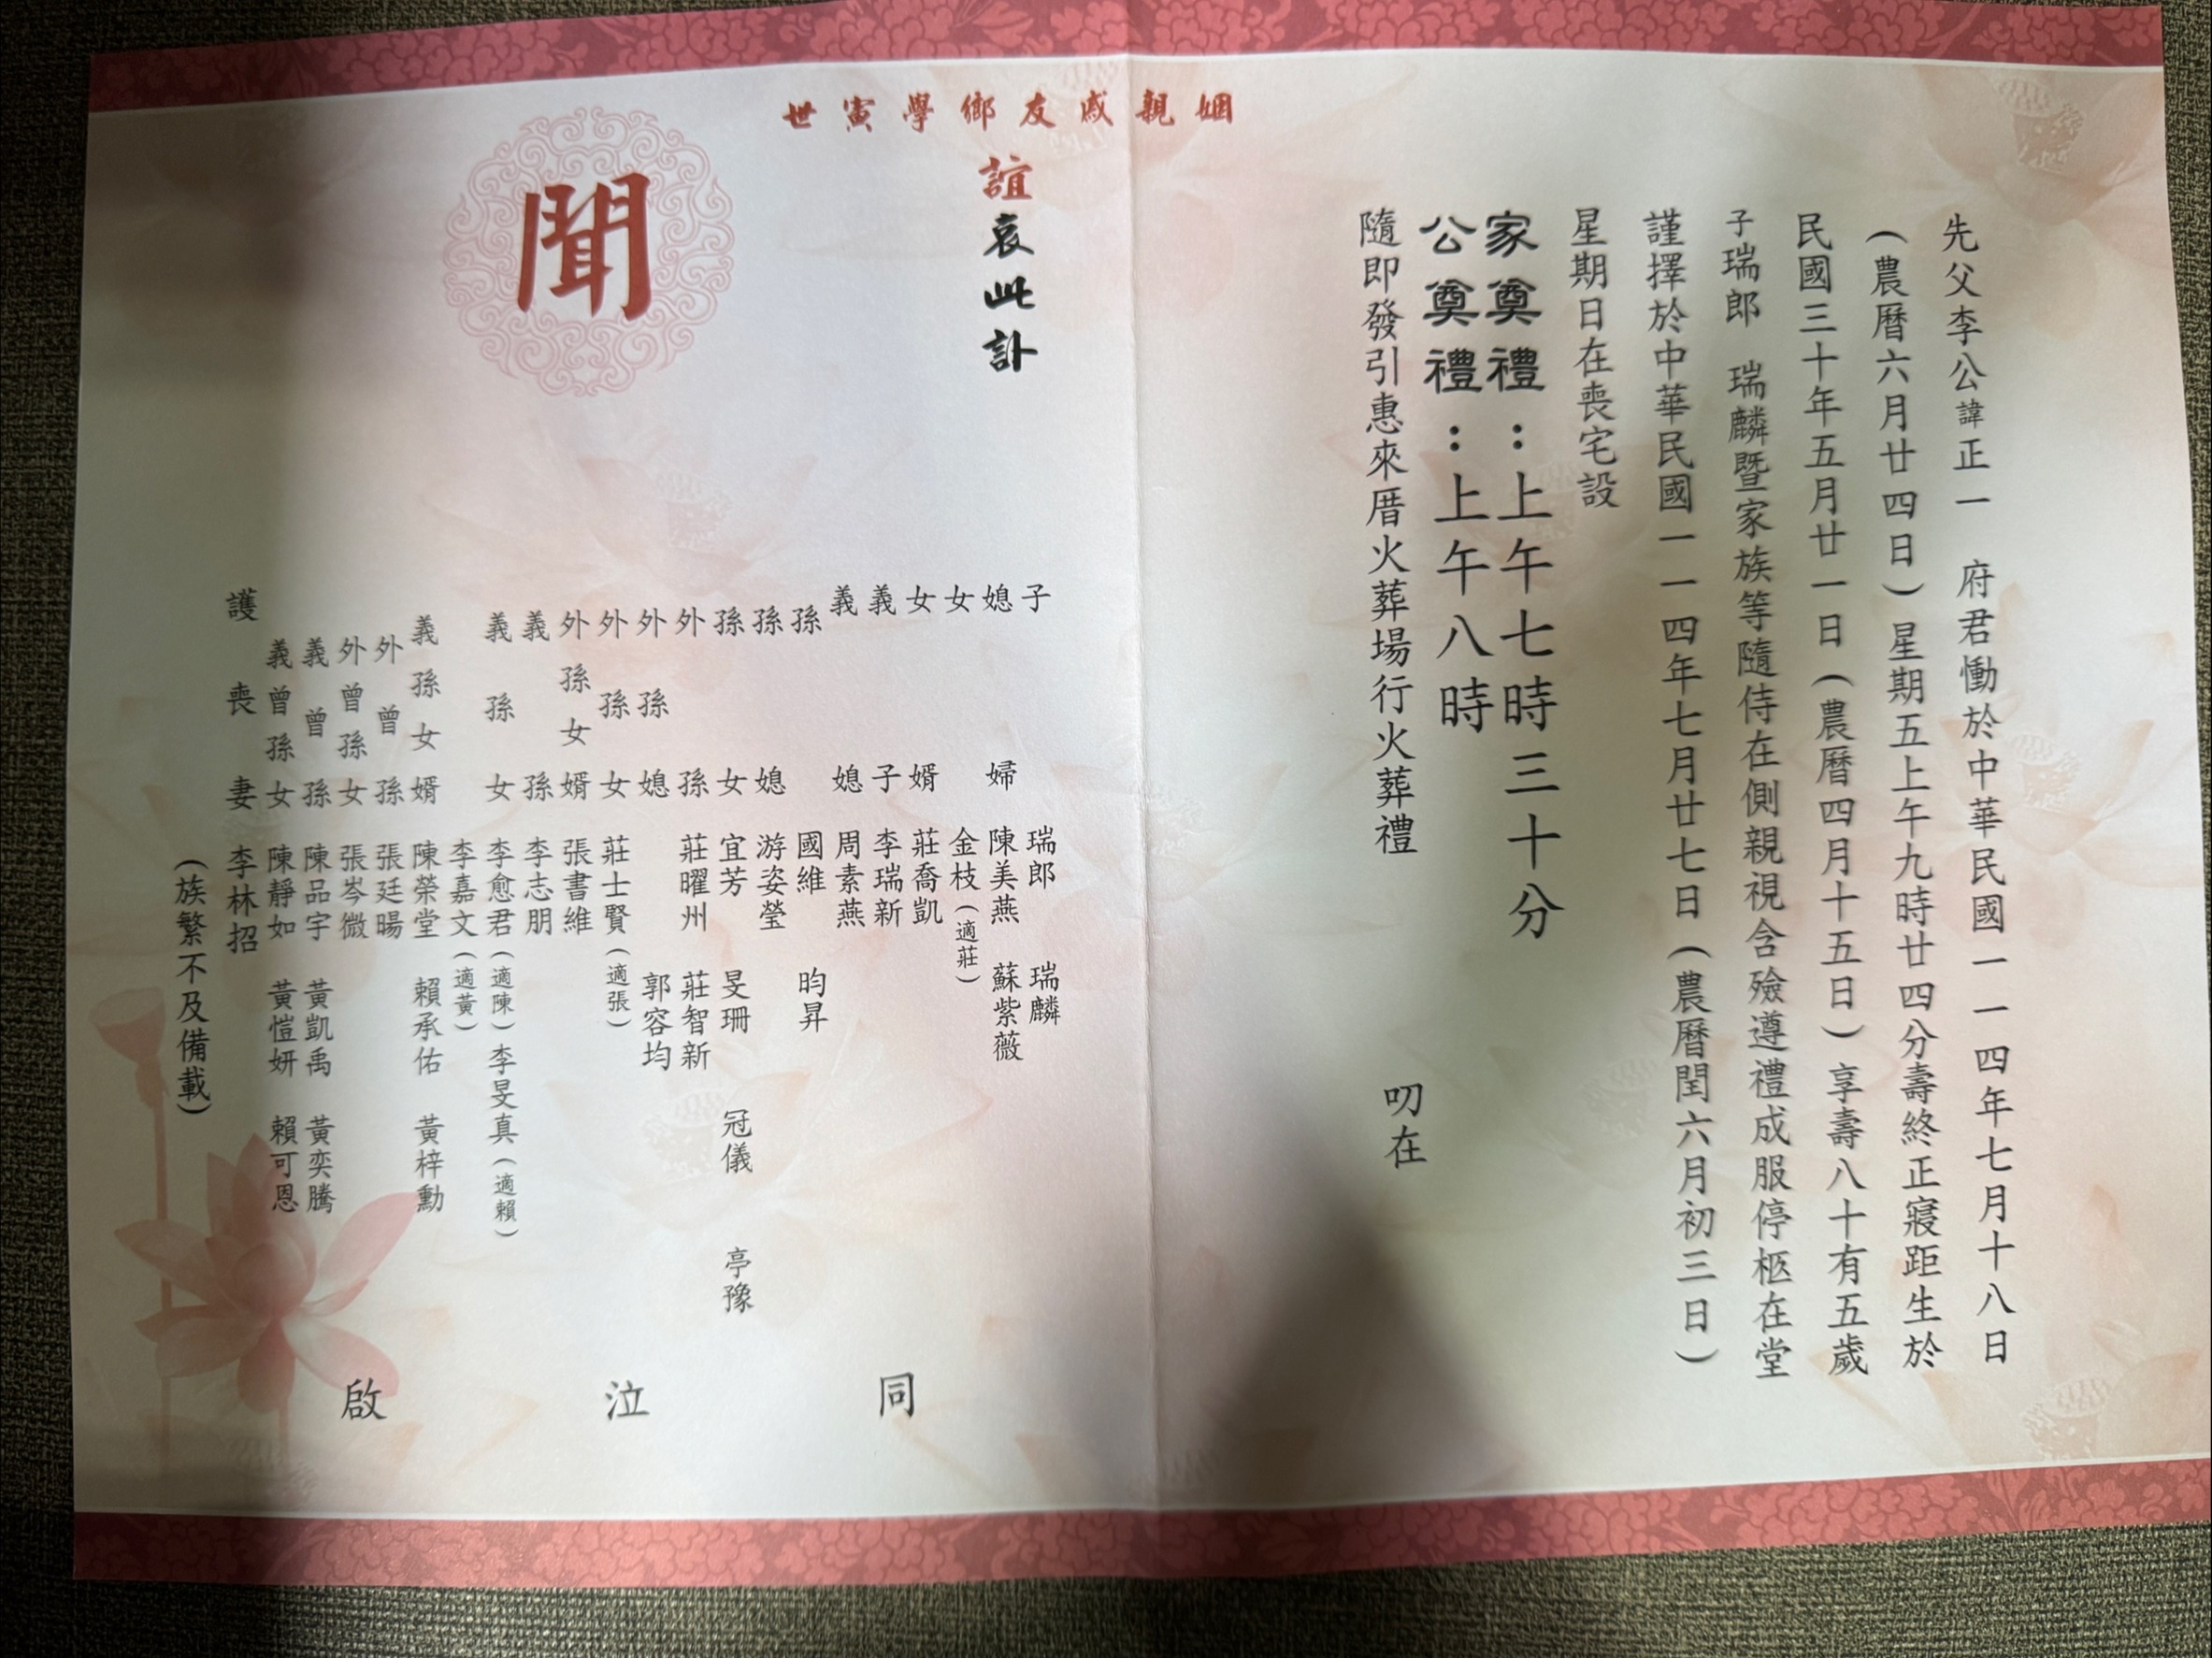 先父李公諱正一　府君慟於中華民國一一四年七月十八日
（農曆六月廿四日）星期五上午九時廿四分壽終正寢距生於
民國三十年五月廿一日（農曆四月十五日）享壽八十有五歲
子瑞郎　瑞麟暨家族等隨侍在側親視含殮遵禮成服停柩在堂
謹擇於中華民國一一四年七月廿七日（農曆閏六月初三日）
星期日在喪宅設
家奠禮：上午七時三十分
公奠禮：上午八時
隨即發引惠來厝火葬場行火葬禮
叨在
姻親戚友鄉學寅世
誼哀此訃
聞
子　瑞郎　瑞麟
媳婦　陳美燕　蘇紫薇
女　金枝（適莊）
女婿　莊喬凱
義子　李瑞新
義媳　周素燕
孫　國維　昀昇
孫媳　游姿瑩
孫女　宜芳　旻珊　冠儀　亭豫
外孫　莊曜州　莊智新
外孫媳　郭容均
外孫女　莊士賢（適張）
外孫女婿　張書維
義孫　李志朋
義孫女　李愈君（適陳）李旻真（適賴）
李嘉文（適黃）
義孫女婿　陳榮堂　賴承佑　黃梓勳
外曾孫　張廷暘
外曾孫女　張岑微
義曾孫　陳品宇　黃凱禹　黃奕騰
義曾孫女　陳靜如　黃愷妍　賴可恩
護喪妻　李林招
（族繁不及備載）
同泣啟